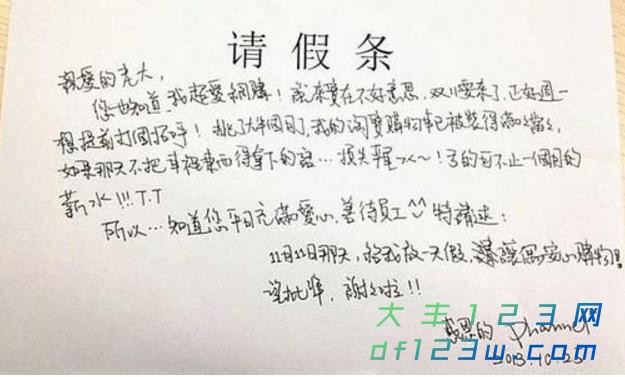 请假条
親愛的老大，
您也知道，我超愛網購！說來實在不好意思，双11要來了，正好週一
想提前打個招呼！挑了大半個月了，我的淘寶購物車已被裝得滿滿當當，
如果那天不把車裡東西拿下的話…損失 ～！了的可不止一個月的
薪水!!! T.T
所以…知道您平日充滿愛心、善待員工^^ 特請述：
11月11日那天，給我放一天假，讓 安心購物！
望批準，謝謝啦!!
感恩的 Channel
2013.10.25
大丰123网
df123w.com